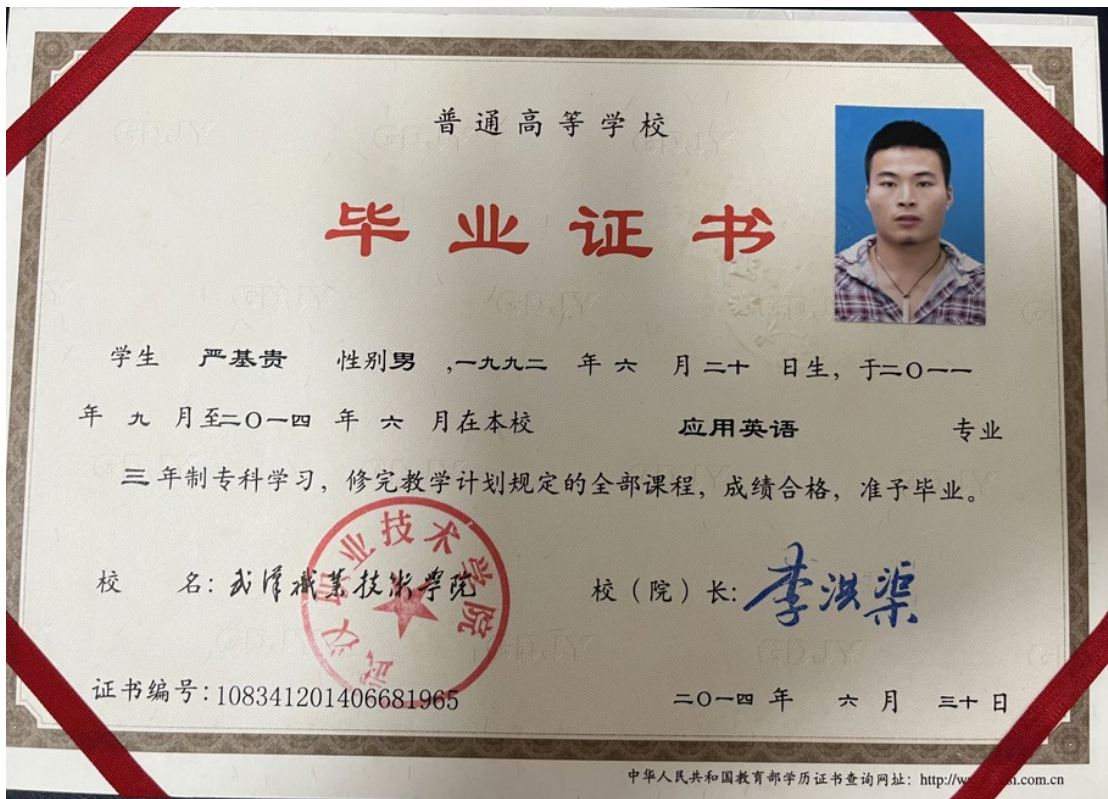 普通高等学校
毕业证书
学生 严基贵 性别男 ,一九九二 年 六 月 二十 日生，于二〇一一
年 九 月至二〇一四 年 六 月在本校 应用英语 专业
三 年制专科学习，修完教学计划规定的全部课程，成绩合格，准予毕业。
校 名：武汉职业技术学院
武汉职业技术学院
校（院）长：李洪渠
证书编号：108341201406681965
二〇一四 年 六 月 三十 日
中华人民共和国教育部学历证书查询网址：